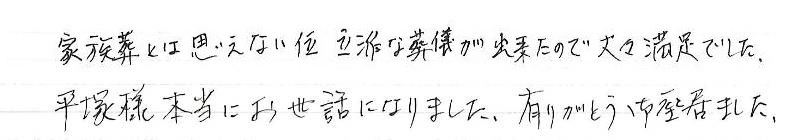 家族葬とは思えない位 立派な葬儀が出来たので大々満足でした。
平塚様 本当にお世話になりました。有りがとう御座居ました。